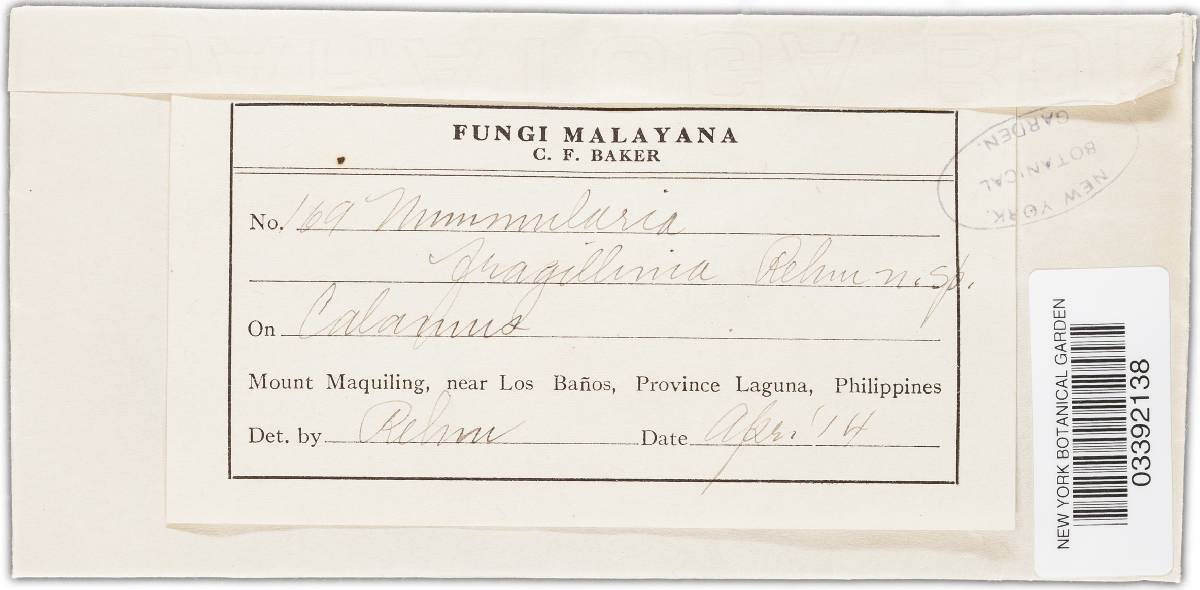 FUNGI MALAYANA
C. F. BAKER
No. 169 Nummularia
fragillinia Rehm n. sp.
On Calamus
Mount Maquiling, near Los Baños, Province Laguna, Philippines
Det. by Rehm Date Apr. '14
NEW YORK
BOTANICAL
GARDEN.
NEW YORK BOTANICAL GARDEN
03392138